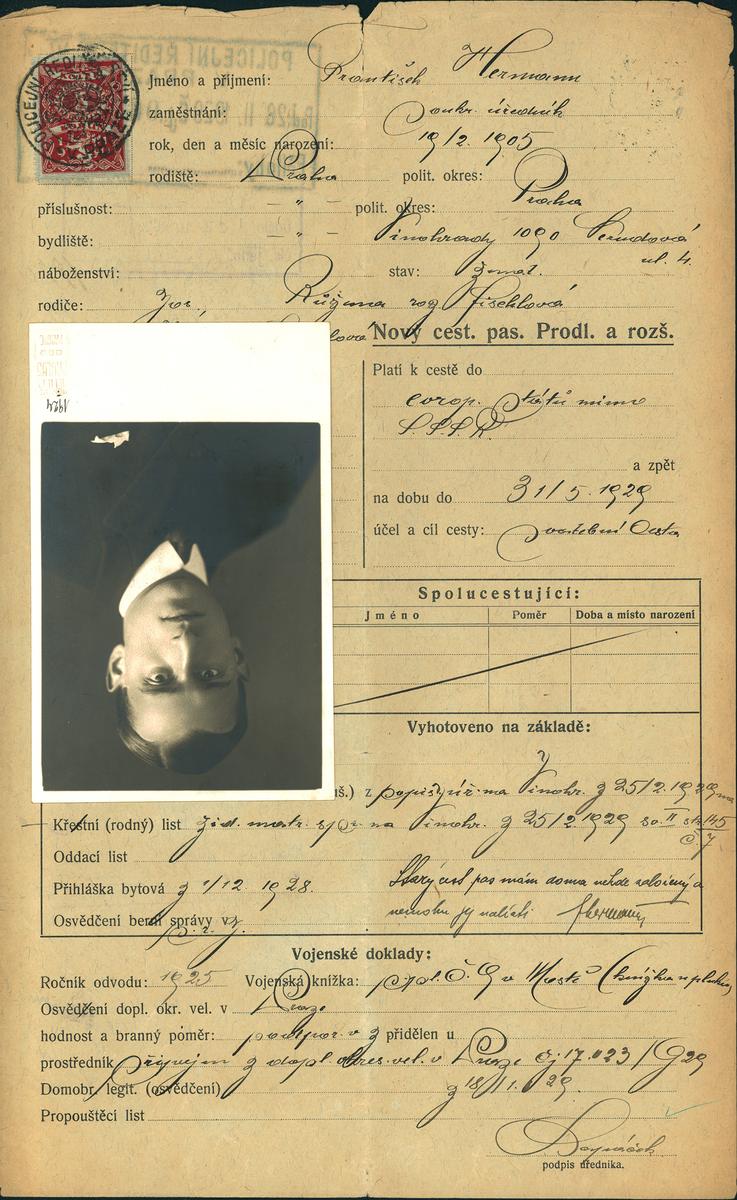 POLICEJNÍ ŘEDITELSTVÍ
Jméno a příjmení: František Hermann
zaměstnání: soukr. úředník
rok, den a měsíc narození: 19/2. 1905
rodiště: Praha polit. okres: Praha
příslušnost: – " – polit. okres:
bydliště: – " – Vinohrady 1090
ul. 4.
náboženství: stav: ženat.
rodiče: Jos., Růžena roz. Fischlová
Nový cest. pas. Prodl. a rozš.
Platí k cestě do
evrop. států mimo
S.S.S.R.
a zpět
na dobu do 31/5. 1929
účel a cíl cesty: svatební cesta
Spolucestující:
Jméno Poměr Doba a místo narození
Vyhotoveno na základě:
z Vinohr. z 25/2. 1929
Křestní (rodný) list žid. matr. na Vinohr. z 25/2. 1929 so. II str. 145
č. 7
Oddací list
Přihláška bytová z 1/12. 1928. Starý cest. pas mám doma někde založený a
Osvědčení berní správy nemohu jej nalézti FHermann
Vojenské doklady:
Ročník odvodu: 1925 Vojenská knížka: č. 9 v Mostě (knížka u pluku)
Osvědčení dopl. okr. vel. v Praze
hodnost a branný poměr: podpor. v z přidělen u
prostředník z dopl. okres. vel. v Praze čj 17.023/1929
Domobr. legit. (osvědčení) z 18/II. 29.
Propouštěcí list
podpis úředníka.
1924